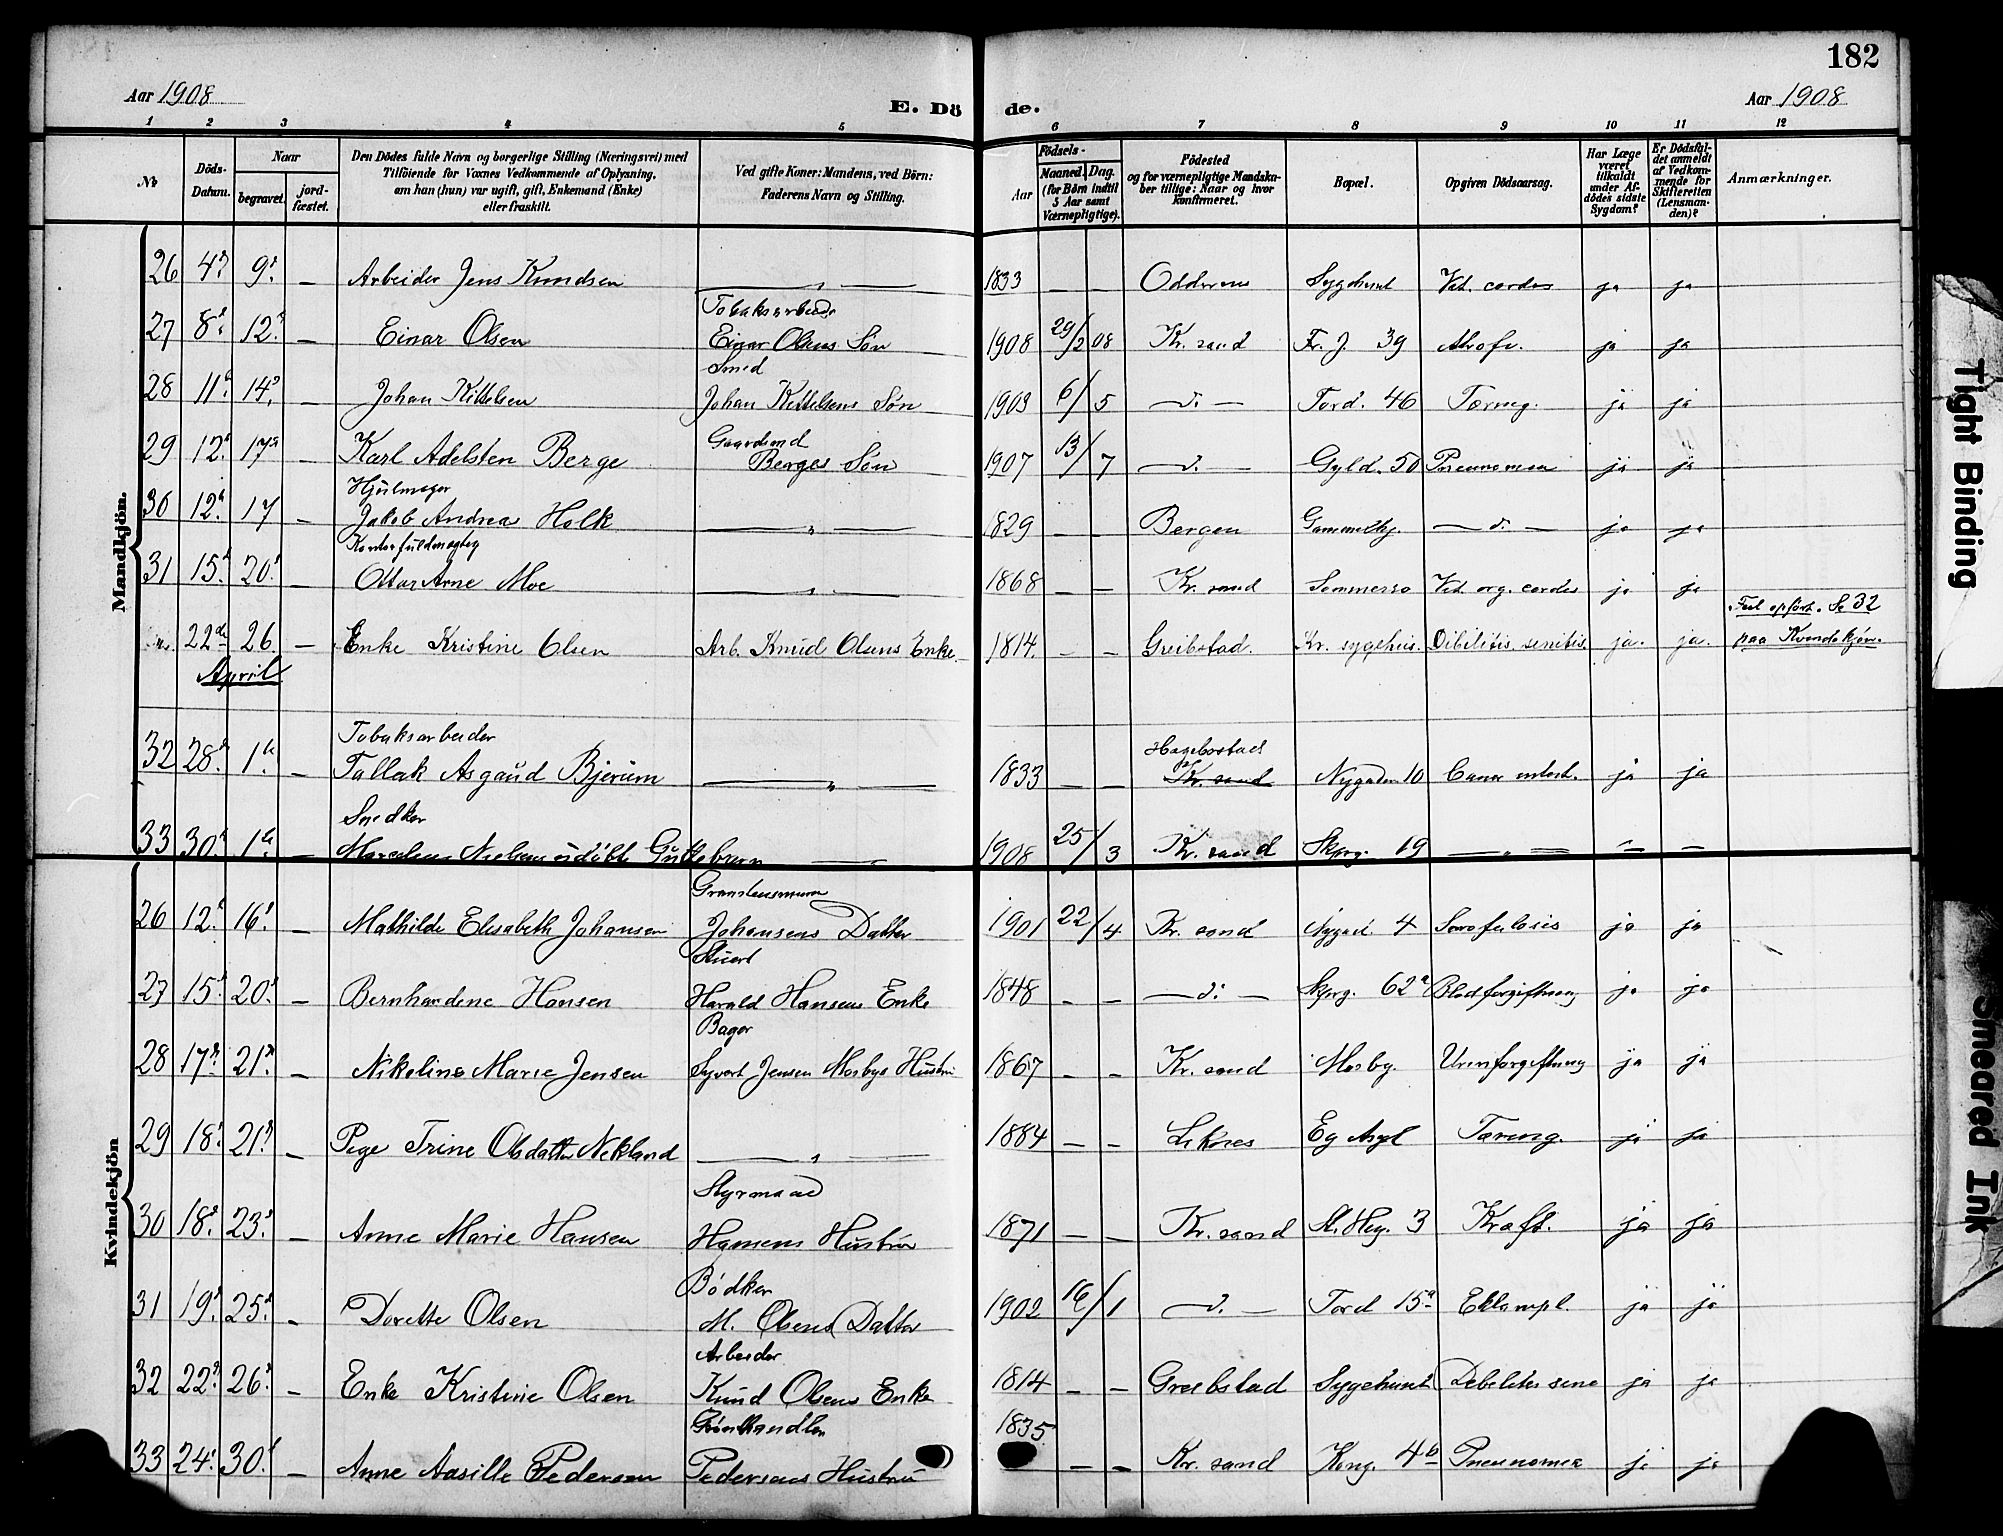 182
Aar 1908
E. Dö de.
Aar 1908
1 2 3 4 5 6 7 8 9 10 11 12
No
Döds-Datum.
Naar
begravet.
jord-fæstet.
Den Dödes fulde Navn og borgerlige Stilling (Næringsvei) med
Tilföiende for Voxnes Vedkommende af Oplysning,
om han (hun) var ugift, gift, Enkemand (Enke)
eller fraskilt.
Ved gifte Koner: Mandens, ved Börn:
Faderens Navn og Stilling.
Födsels-
Aar
Maaned. Dag.
(for Börn indtil
5 Aar samt
Værnepligtige).
Födested
og for værnepligtige Mandska-
ber tillige: Naar og hvor
konfirmeret.
Bopæl.
Opgiven Dödsaarsag.
Har Læge
været
tilkaldt
under Af-
dödes sidste
Sygdom?
Er Dödsfal-
det anmeldt
af Vedkom-
mende for
Skifteretten
(Lensman-
den)?
Anmærkninger.
Mandkjön.
26 4 9 — Arbeider Jens Knudsen — " — 1833 — — Oddernes Vit. cordis ja ja
Tobaksarbeider
27 8 12 — Einar Olsen Einar Olsens Søn 1908 29/2 08 Kr. sand Fr. J. 39 Atrofi. ja ja
Smed
28 11 14 — Johan Kittelsen Johan Kittelsens Søn 1903 6/5 — d. — Tord. 46 Tæring. ja ja
Gaardsmd
29 12 17 — Karl Adelsten Berge Berges Søn 1907 13/7 — d. — Gyld. 50 Pneumonia ja ja
Hjulmager
30 12 17 — Jakob Andreas Holk — " — 1829 — — Bergen — d. — ja ja
Kontorfuldmægtig
31 15 20 — Ottar Arne Moe — " — 1868 — — Kr. sand Vit. org. cordis ja ja
Feil opført. Se 32
22de 26 — Enke Kristine Olsen Arb. Knud Olsens Enke. 1814. — — Greibstad. Kr. sygehus. Dibilitis. senitis. ja. ja. paa Kvindekjøn.
April
Tobaksarbeider Hægebostad
32 28 1 — Tallak Asgaud Bjerum — " — 1833 — — Kr. sand Nygaden 10 ja ja
Snedker
33 30 1 — Nielsens udøbte Guttebarn — 1908 25/3 Kr. sand Skprg. 19 — " — — —
Kvindekjön
26 12 16 — Mathilde Elisabeth Johansen Johansens Datter 1901 22/4 Kr. sand Nygad. 4 Scrofulosis ja ja
Stuert
27 15 20 — Bernhardine Hansen Harald Hansens Enke 1848 — — — d. — Skprg. 62a Blodforgiftning ja ja
Bager
28 17 21 — Nikoline Marie Jensen Syvert Jensen Mosbys Hustru 1867 — — Kr. sand Mosby. Urinforgiftning ja ja
29 18 21 — Pige Trine Olsdatter Nekland — " — 1884 — — Eg Asyl Tæring. ja ja
Styrmand
30 18 23 — Anne Marie Hansen Hansens Hustru 1871 — — Kr. sand 3 Kræft. ja ja
Bødker
31 19 25 — Dorette Olsen M. Olsens Datter 1902 16/1 — d. — Tord 15a Eklampl. ja ja
Arbeider
32 22 26 — Enke Kristine Olsen Knud Olsens Enke 1814 — — Greibstad Sygehuset Debilites sene ja ja
Grønthandler
33 24 30 — Anne Aasille Pedersen Pedersens Hustru 1835 — — Kr. sand Kong. 4b Pneunomia ja ja
Tight Binding
Smeared Ink